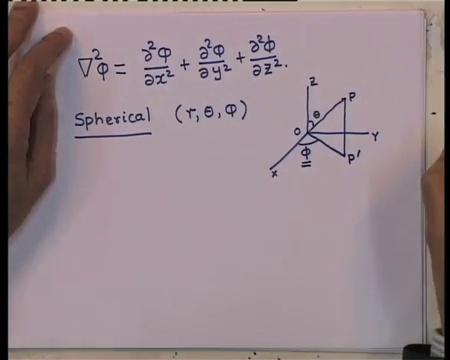 ∇²φ = ∂²φ/∂x² + ∂²φ/∂y² + ∂²φ/∂z².
Spherical (r, θ, φ)
Z
P
θ
O
Y
φ
P'
X